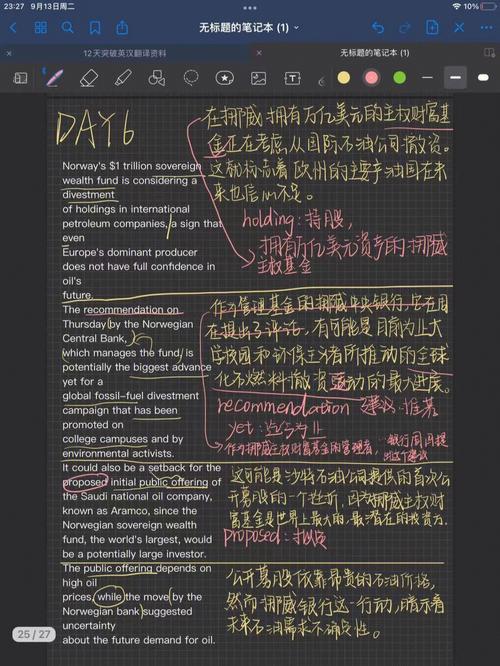 23:27 9月13日周二
10%
无标题的笔记本 (1)
12天突破英汉翻译资料
无标题的笔记本 (1)
DAY6
Norway's $1 trillion sovereign
wealth fund is considering a
divestment
of holdings in international
petroleum companies, a sign that
even
Europe's dominant producer
does not have full confidence in
oil's
future.
在挪威,拥有万亿美元的主权财富基
金正在考虑从国际石油公司撤资。
这就标志着欧州的主要产油国在未
来也信心不足。
holding: 持股,
拥有万亿美元资产的挪威
主权基金
The recommendation on
Thursday by the Norwegian
Central Bank,
which manages the fund, is
potentially the biggest advance
yet for a
global fossil-fuel divestment
campaign that has been
promoted on
college campuses and by
environmental activists.
作为管理基金的挪威中央银行,它在周
在提出了评论,有可能是目前为止大
学校园和环保主义者所推动的全球
化石燃料撤资运动的最大进展。
recommendation 建议、推荐
yet: 迄今为止
作为挪威主权财富基金的管理者,
银行周四提
出这个建议
It could also be a setback for the
proposed initial public offering of
the Saudi national oil company,
known as Aramco, since the
Norwegian sovereign wealth
fund, the world's largest, would
be a potentially large investor.
这可能是沙特石油公司提供的首次公
开募股的一个挫折,因为挪威主权财
富基金是世界上最大的、最潜在的投资方.
proposed: 拟议
The public offering depends on
high oil
prices, while the move by the
Norwegian bank suggested
uncertainty
about the future demand for oil.
公开募股依靠昂贵的石油价格,
然而挪威银行这一行动,暗示着
未来石油需求不确定性。
25 / 27